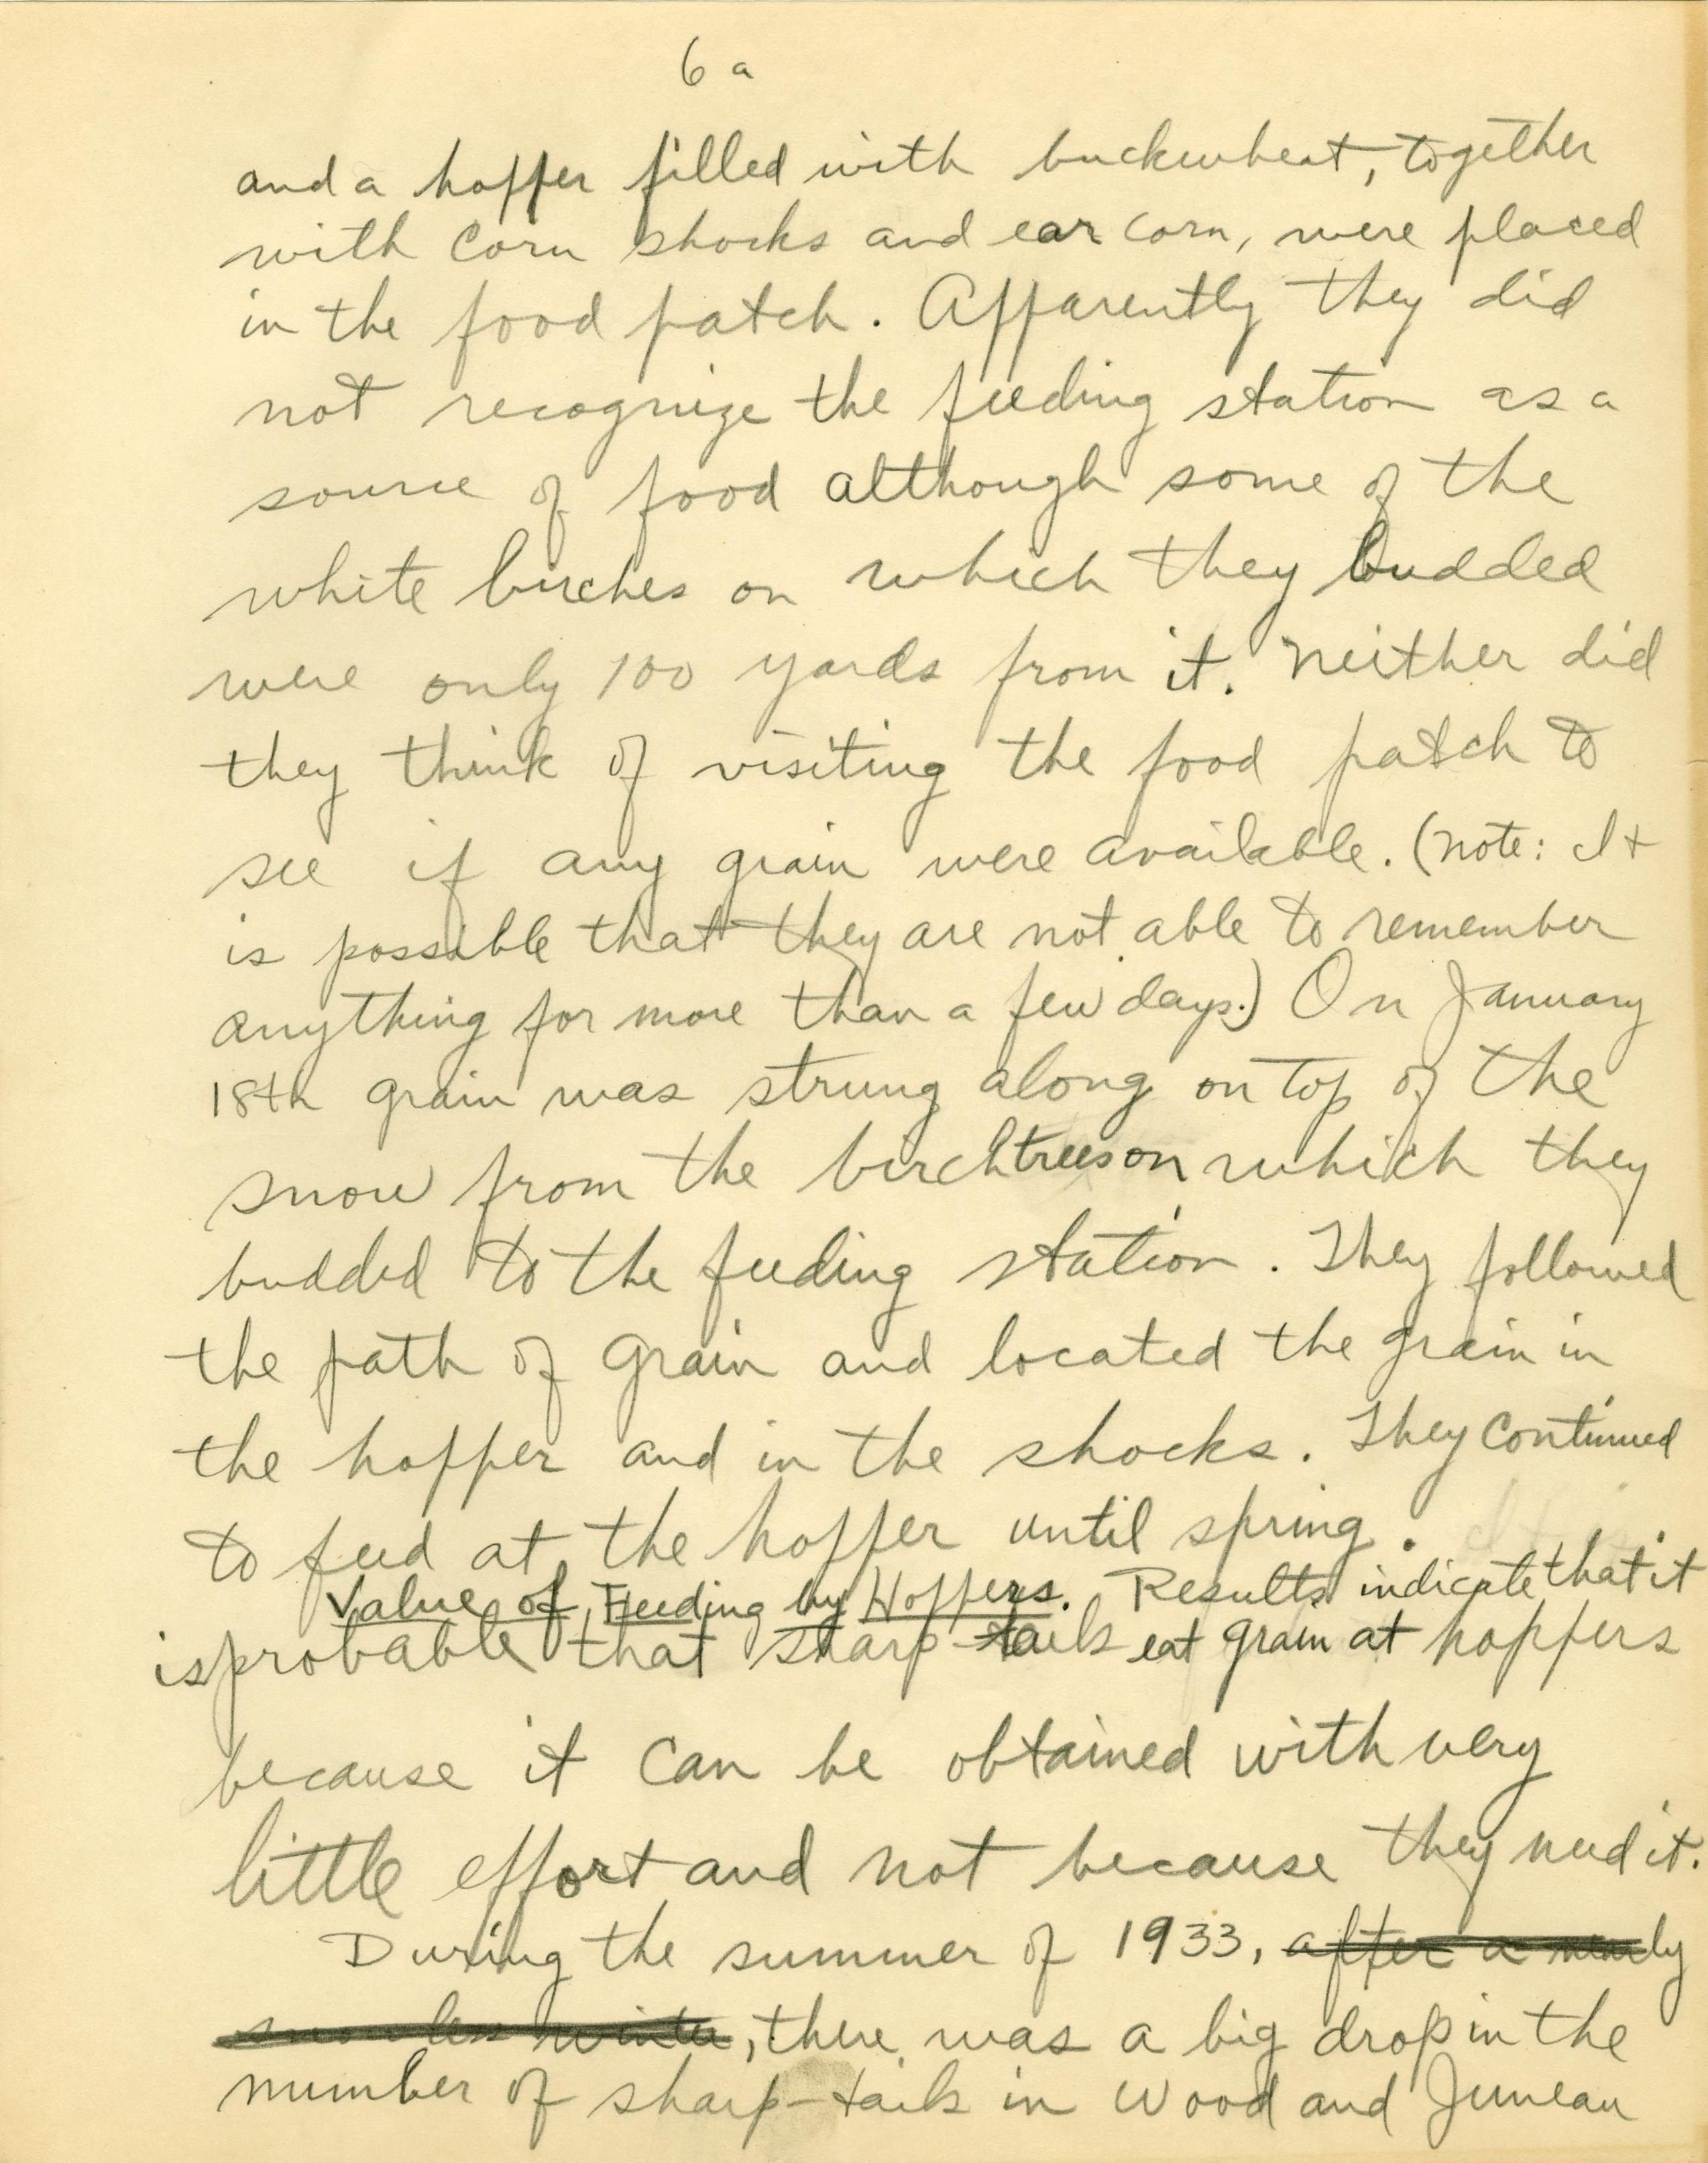 6 a
and a hopper filled with buckwheat, together
with corn shocks and ear corn, were placed
in the food patch. Apparently they did
not recognize the feeding station as a
source of food although some of the
white birches on which they budded
were only 100 yards from it. Neither did
they think of visiting the food patch to
see if any grain were available. (note: It
is possible that they are not able to remember
anything for more than a few days.) On January
18th grain was strung along on top of the
snow from the birch trees on which they
budded to the feeding station. They followed
the path of grain and located the grain in
the hopper and in the shocks. They continued
to feed at the hopper until spring.
Value of Feeding by Hoppers. Results indicate that it
is probable that sharp-tails eat grain at hoppers
because it can be obtained with very
little effort and not because they need it.
During the summer of 1933, after a nearly
snowless winter, there was a big drop in the
number of sharp-tails in Wood and Juneau